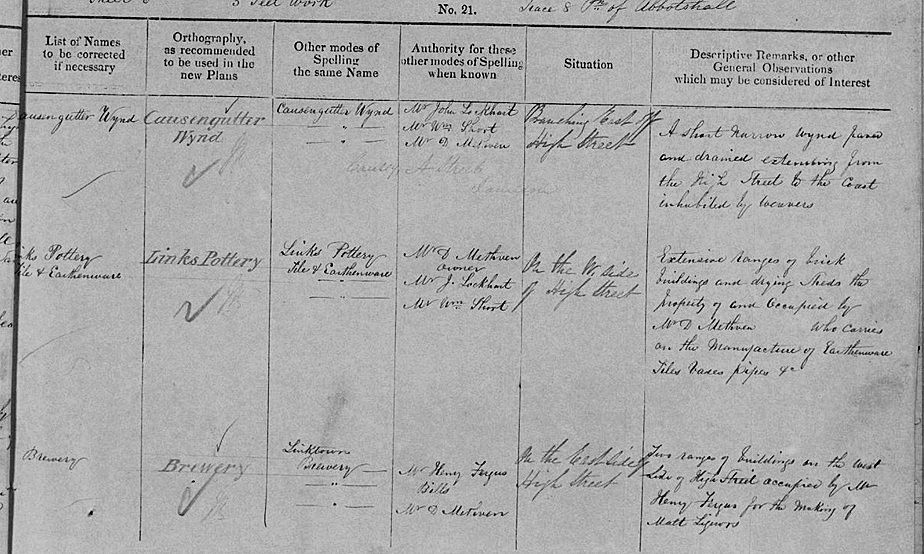 5 Feet Work
No. 21.
Trace 8 Ph of Abbotshall
List of Names
to be corrected
if necessary
Orthography,
as recommended
to be used in the
new Plans
Other modes of
Spelling
the same Name
Authority for these
other modes of Spelling
when known
Situation
Descriptive Remarks, or other
General Observations
which may be considered of Interest
ausengutter Wynd
Causengutter
Wynd
Causengutter Wynd
— " —
— " —
Mr John Lockhart
Mr Wm Short
Mr D Methven
Branching East off
High Street
A Short narrow Wynd paved
and drained extending from
the High Street to the Coast
inhabited by weavers
A Street
nks Pottery
Tile & Earthenware
Links Pottery
Links Pottery
Tile & Earthenware
— " —
— " —
Mr D Methven
owner
Mr J. Lockhart
Mr Wm Short
On the W. side
of High Street
Extensive ranges of brick
buildings and drying Sheds the
property of and Occupied by
Mr D Methven Who carries
on the Manufacture of Earthenware
Tiles Vases pipes &c
Brewery
Brewery
Linktown
Brewery
— " —
— " —
Mr Henry Fergus
Bills
Mr D Methven
On the East side of
High Street
Two ranges of buildings on the west
side of High Street occupied by Mr
Henry Fergus for the making of
Malt Liquors